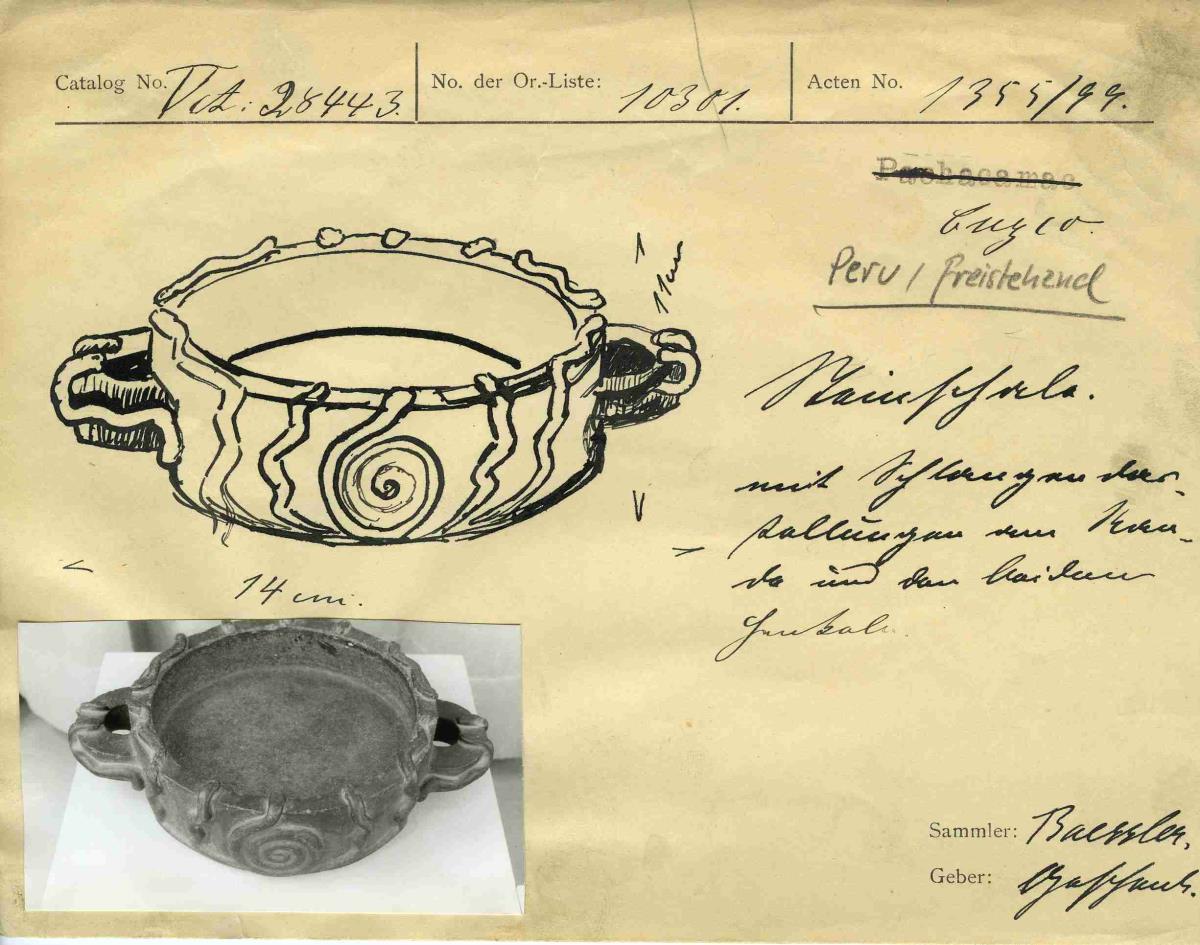 Catalog No. VA: 28443.
No. der Or.-Liste: 10301.
Acten No. 1355/99.
Pachacamac
Cuzco.
Peru / freistehend
Steinschale.
mit Schlangendar-
stellungen am Ran-
de und den beiden
Henkeln.
14 cm.
Sammler: Baessler.
Geber: Geschenk.